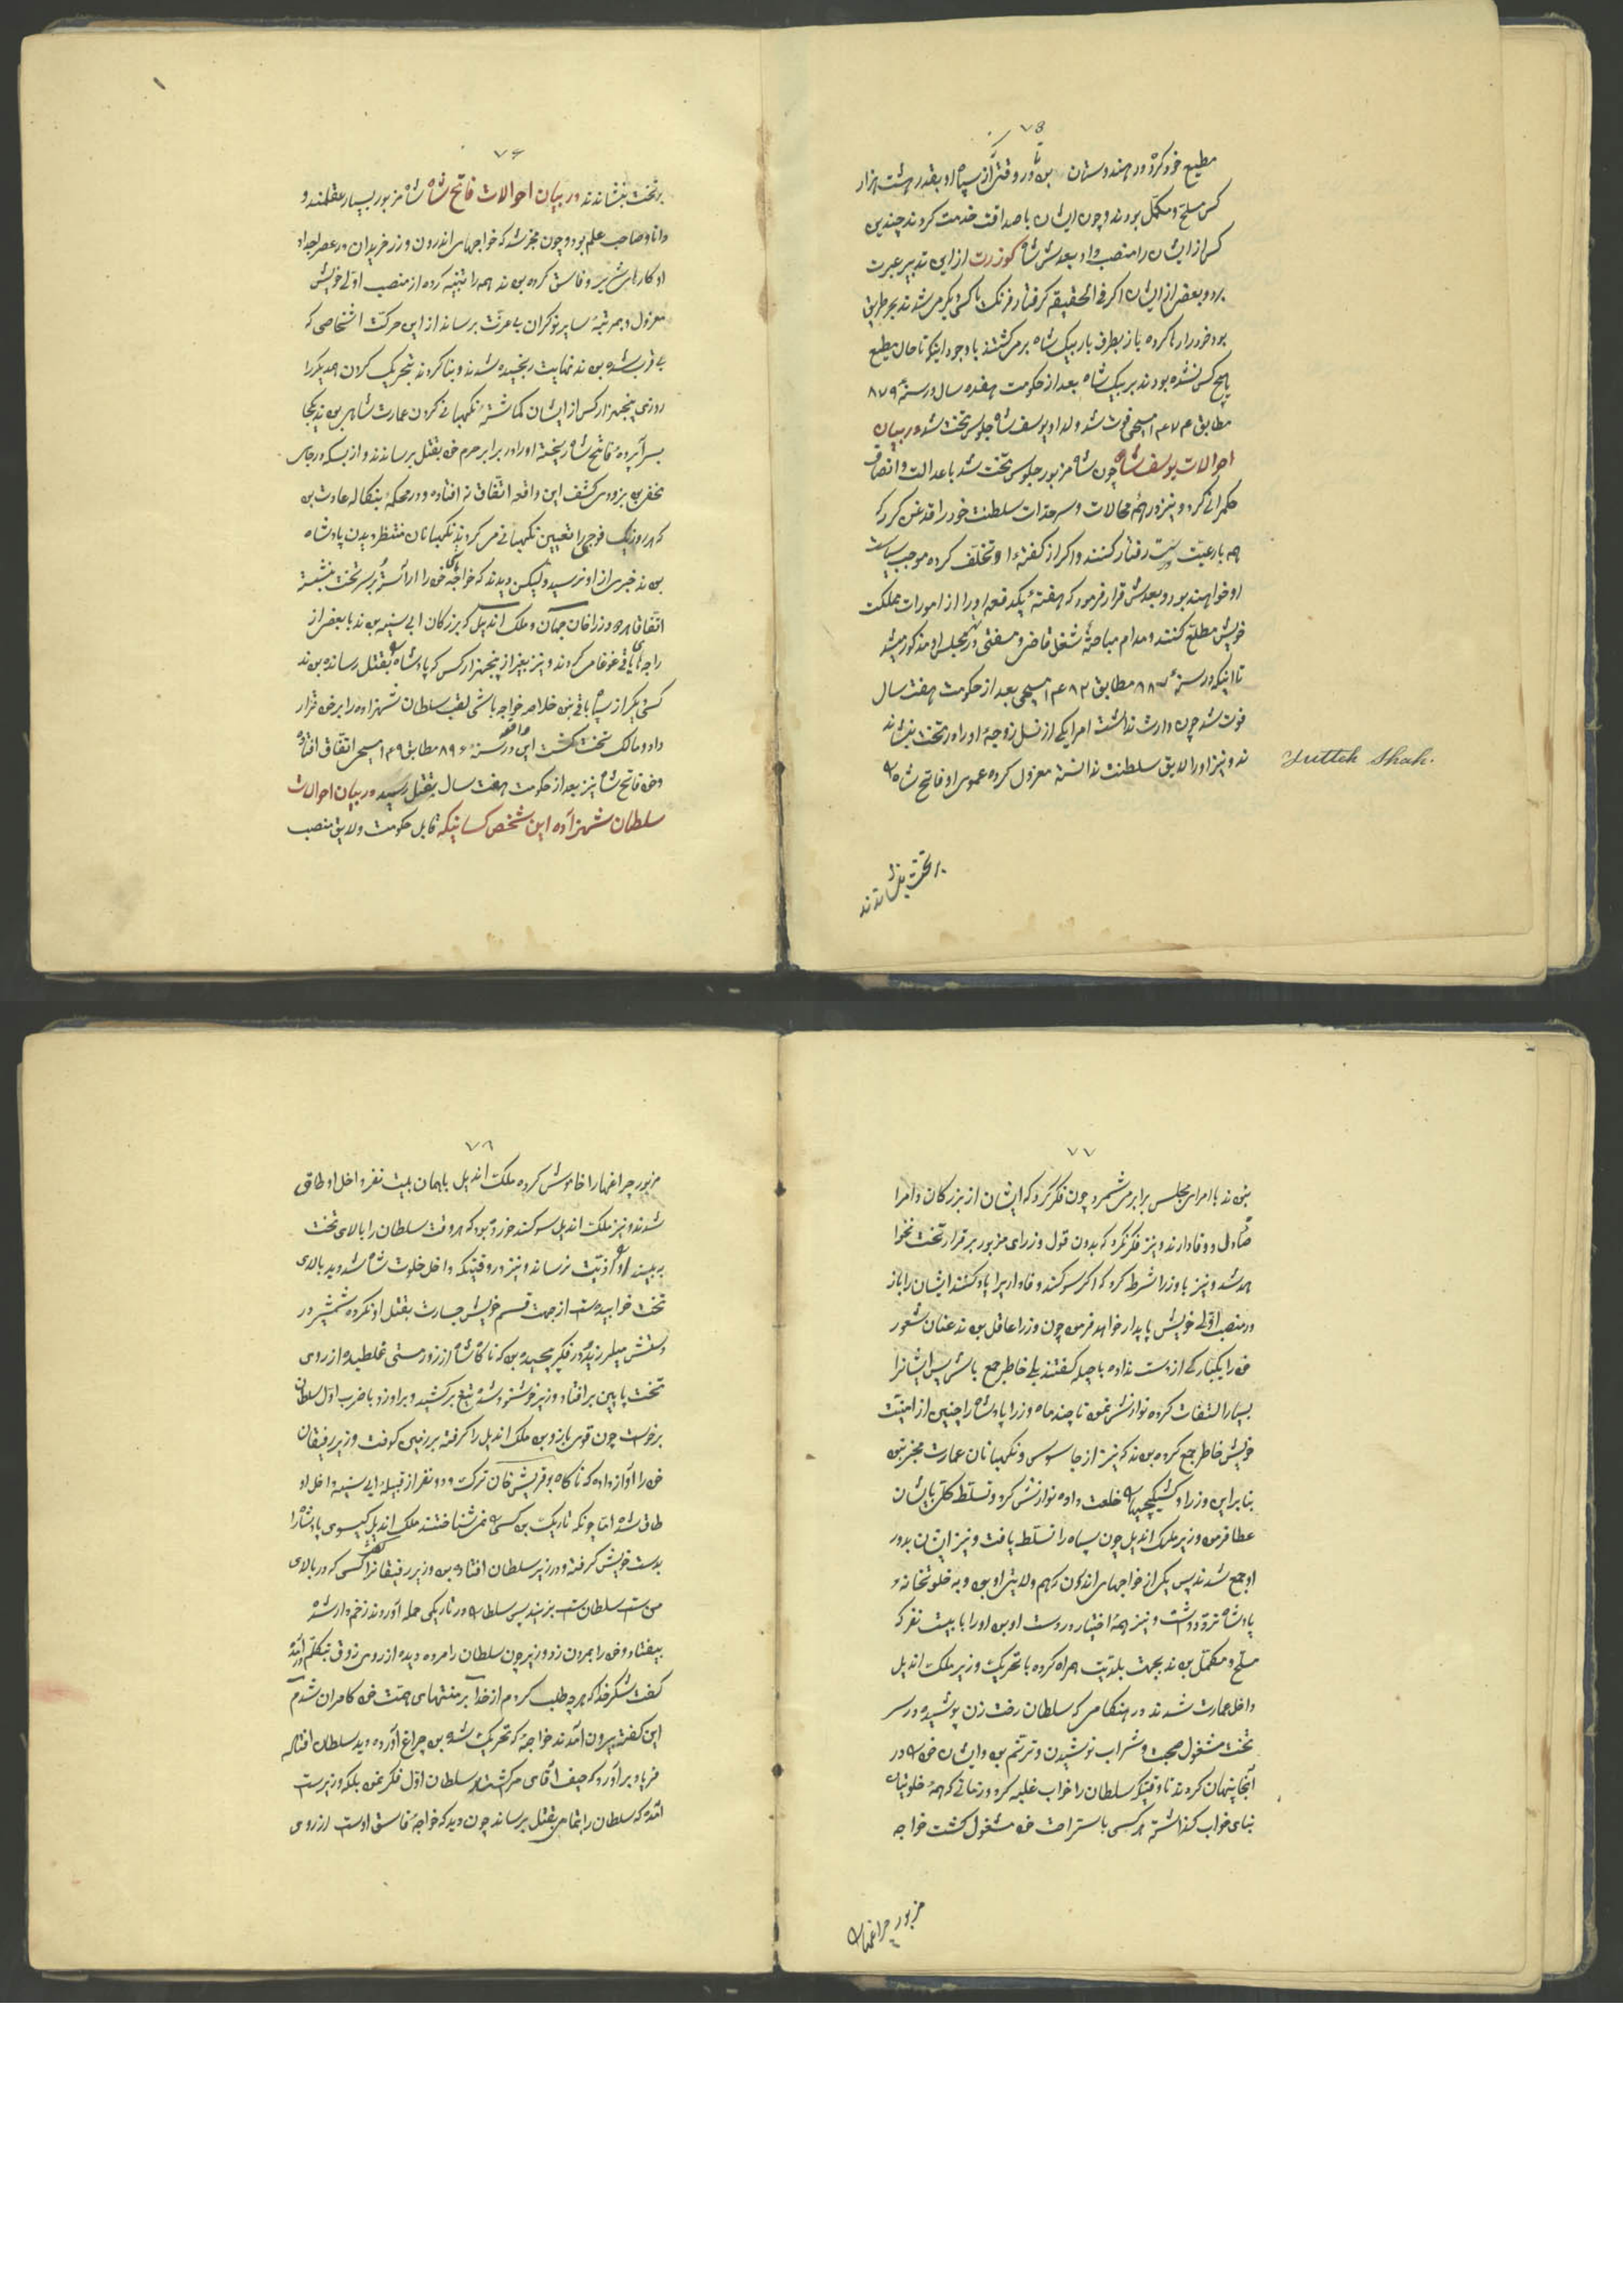 ۷۵
مطیع خود کرد در هندوستان بن تا در وقتی از سپاه او بقدر هشت هزار
کس مسلح و مکمل بودند و چون ایشان با صداقت خدمت کردند چندین
کس از ایشان را منصب داد بعدش شاه کوزرت از این تدبیر عبرت
برد و بعضی از ایشان اکر فی الحقیقه کرفتار فرنک با کسی دیکر می شدند بهر طریق
بود خود را رها کرده باز بطرف باربیک شاه بر می کشتند با وجود اینکه تا حال مطیع
هیچ کس نشده بودند بربیک شاه بعد از حکومت هفده سال در سنهٔ ۸۷۹
مطابق ۱۴۷۴ مسیحی فوت شد ولد او یوسف شاه جلوس تخت شد در بیان
احوالات یوسف شاه چون شاه مزبور جلوس تخت شد با عدالت و انصاف
حکمرانی کرد و نیز در همهٔ محالات و سرحدات سلطنت خود را قدغن کرد که
همه با رعیت رفتار کنند و اکر از کفتهٔ او تخلف کرده موجب سیاست
او خواهند بود و بعدش قرار فرمود که هفتهٔ یکدفعه او را از امورات مملکت
خویش مطلع کنند و مدام مباحثهٔ شغل قاضی و مفتی در مجلس او مذکور میشد
تا اینکه در سنهٔ ۸۸۷ مطابق ۱۴۸۲ مسیحی بعد از حکومت هفت سال
فوت شد چون وارث نداشت امرا یکی از نسل زوجهٔ او را در تخت بنشاند
ند و نیز او را لایق سلطنت ندانسته معزول کرده عموی او فاتح شاه را
Futteh Shah.
بر تخت بنشاندند
۷۶
بر تخت بنشاندند در بیان احوالات فاتح شاه شاه مزبور بسیار عقلمند و
دانا و صاحب علم بود و چون مخبر شد که خواجهای اندرون و زر خریدان در عصر اجداد
او کارهای شریر و فاسق کرده بودند همه را تنبیه کرده از منصب اولی خویش
معزول و بمرتبهٔ سایر نوکران بی عزت برساند از این حرکت اشخاصی که
بی قرب شده بودند نهایت رنجیده شدند و بنا کردند بتحریک کردن همدیکر را
روزی پنجهزار کس از ایشان کماشتهٔ نکهبانی کردن عمارت شاهی بودند یکجا
بسراپردهٔ فاتح شاه ریخته او را در برابر حرم خود بقتل برساندند و از بسکه در جای
مخفی بود بزودی کشف این واقعه اتفاق نه افتاده و در محکمهٔ بنکاله عادت بود
که هر روز یک فوجی را تعیین نکهبانی می کردند نکهبانان منتظر دیدن پادشاه
بودند خبری از او نرسید ولیکن دیدند که خواجهٔ خود را آراسته بر سر تخت بنشسته
اتفاقا هر دو وزرا خان جهان و ملک اندیل که بزرکان ابی سینیه بودند با بعضی از
راجه های باقی غوغا می کردند و نیز بغیر از پنجهزار کس که پادشاه را بقتل رسانده بودند
کسی دیکر از سپاه باقی نبود خلاصه خواجه باشی لقب سلطان شهزاده را بر خود قرار
داد و مالک تخت کشت این واقعه در سنهٔ ۸۹۶ مطابق ۱۴۹۱ مسیحی اتفاق افتاد
و خود فاتح شاه نیز بعد از حکومت هفت سال بقتل رسید در بیان احوالات
سلطان شهزاده این شخص کسانیکه قابل حکومت و لایق منصب
۷۷
بودند با امرای مجلس برابر می شمرد چون فکر کرد که ایشان از بزرکان و امرا
صادق و وفادارند و نیز فکر نکرد که بدون قول وزرای مزبور برقرار تخت نخوا
هد شد و نیز با وزرا شرط کرد که اکر سوکند وفاداری را یاد کنند ایشان را باز
در منصب اولی خویش پایدار خواهد فرمود چون وزرا عاقل بودند عنان شعور
خود را یکبارکی از دست نداده با حیله کفتند بلی خاطر جمع باش پس ایشانرا
بسیار التفات کرده نوازش نمود تا چند ماه وزرا پادشاه را چنین از امنیت
خویش خاطر جمع کرده بودند که نیز از جاسوسی و نکهبانان عمارت مخبر نبود
بنابراین وزرا و کشیکچیها را خلعت داده نوازش کرد و تسلط کلی بایشان
عطا فرمود وزیر ملک اندیل چون سپاه را تسلط یافت و نیز ایشان بدور
او جمع شدند پس یکی از خواجهای اندرون که هم ولایتی او بود و به خلوتخانه
پادشاه تردد داشت و نیز همهٔ اختیار در دست او بود او را با بیست نفر که
مسلح و مکمل بودند بجهت بلدیت همراه کرده با تحریک وزیر ملک اندیل
داخل عمارت شدند در هنکامی که سلطان رخت زن پوشیده در سر
تخت مشغول صحبت و شراب نوشیدن و ترنم بود و ایشان خود را در
آنجا پنهان کردند تا وقتیکه سلطان را خواب غلبه کرد و زمانی که همهٔ خلوتیان
بنای خواب کذاشته هر کسی باستراحت خود مشغول کشت خواجه
مزبور چراغها را
۷۸
مزبور چراغها را خاموش کرده ملک اندیل باهمان بیست نفر داخل اوطاق
شدند و نیز ملک اندیل سوکند خورده بود که هر وقت سلطان را بالای تخت
به بیند او را اذیت نرساند و نیز در وقتیکه داخل خلوت شاه شد دید بالای
تخت خوابیده است از جهت قسم خویش جسارت بقتل او نکرده شمشیر در
دستش میلرزید و در فکر پیچیده بود که ناکاه شاه از زور مستی غلطیده از روی
تخت پایین بر افتاد وزیر خوشنود شده تیغ برکشید و بر او زد با ضرب اول سلطان
برخواست چون قوی بازو بود ملک اندیل را کرفته بر زمین کوفت وزیر رفیقان
خود را آواز داده که ناکاه یوغریش خان ترک و دو نفر از قبیلهٔ ابی سینیه داخل او
طاق شده اما چونکه تاریک بود کسی را نمی شناختند ملک اندیل کیسوی پادشاه را
بدست خویش کرفته و در زیر سلطان افتاده بود وزیر رفیقانرا کفت کسی که در بالای
من است سلطان است بزنید پس سلطان را در تاریکی حمله آوردند زخم دار شده
بیفتاد و خود را بمردن زد وزیر چون سلطان را مرده دیده از روی ذوق بتکلم در آمده
کفت شکر خدا که هر چه طلب کردم از خدا بر منتهای همت خود کامران شدم
این کفته بیرون آمدند خواجهٔ که تحریک شده بود چراغ آورده دید سلطان افتاده
فریاد برآورد که حیف آقای من کشته شد سلطان اول فکر نمود بلکه وزیر است
آمده که سلطان را بتمامی بقتل برساند چون دید که خواجهٔ فاسق اوست از روی